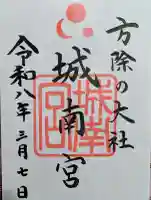 方除の大社
城南宮
令和八年三月七日
城南
宮印